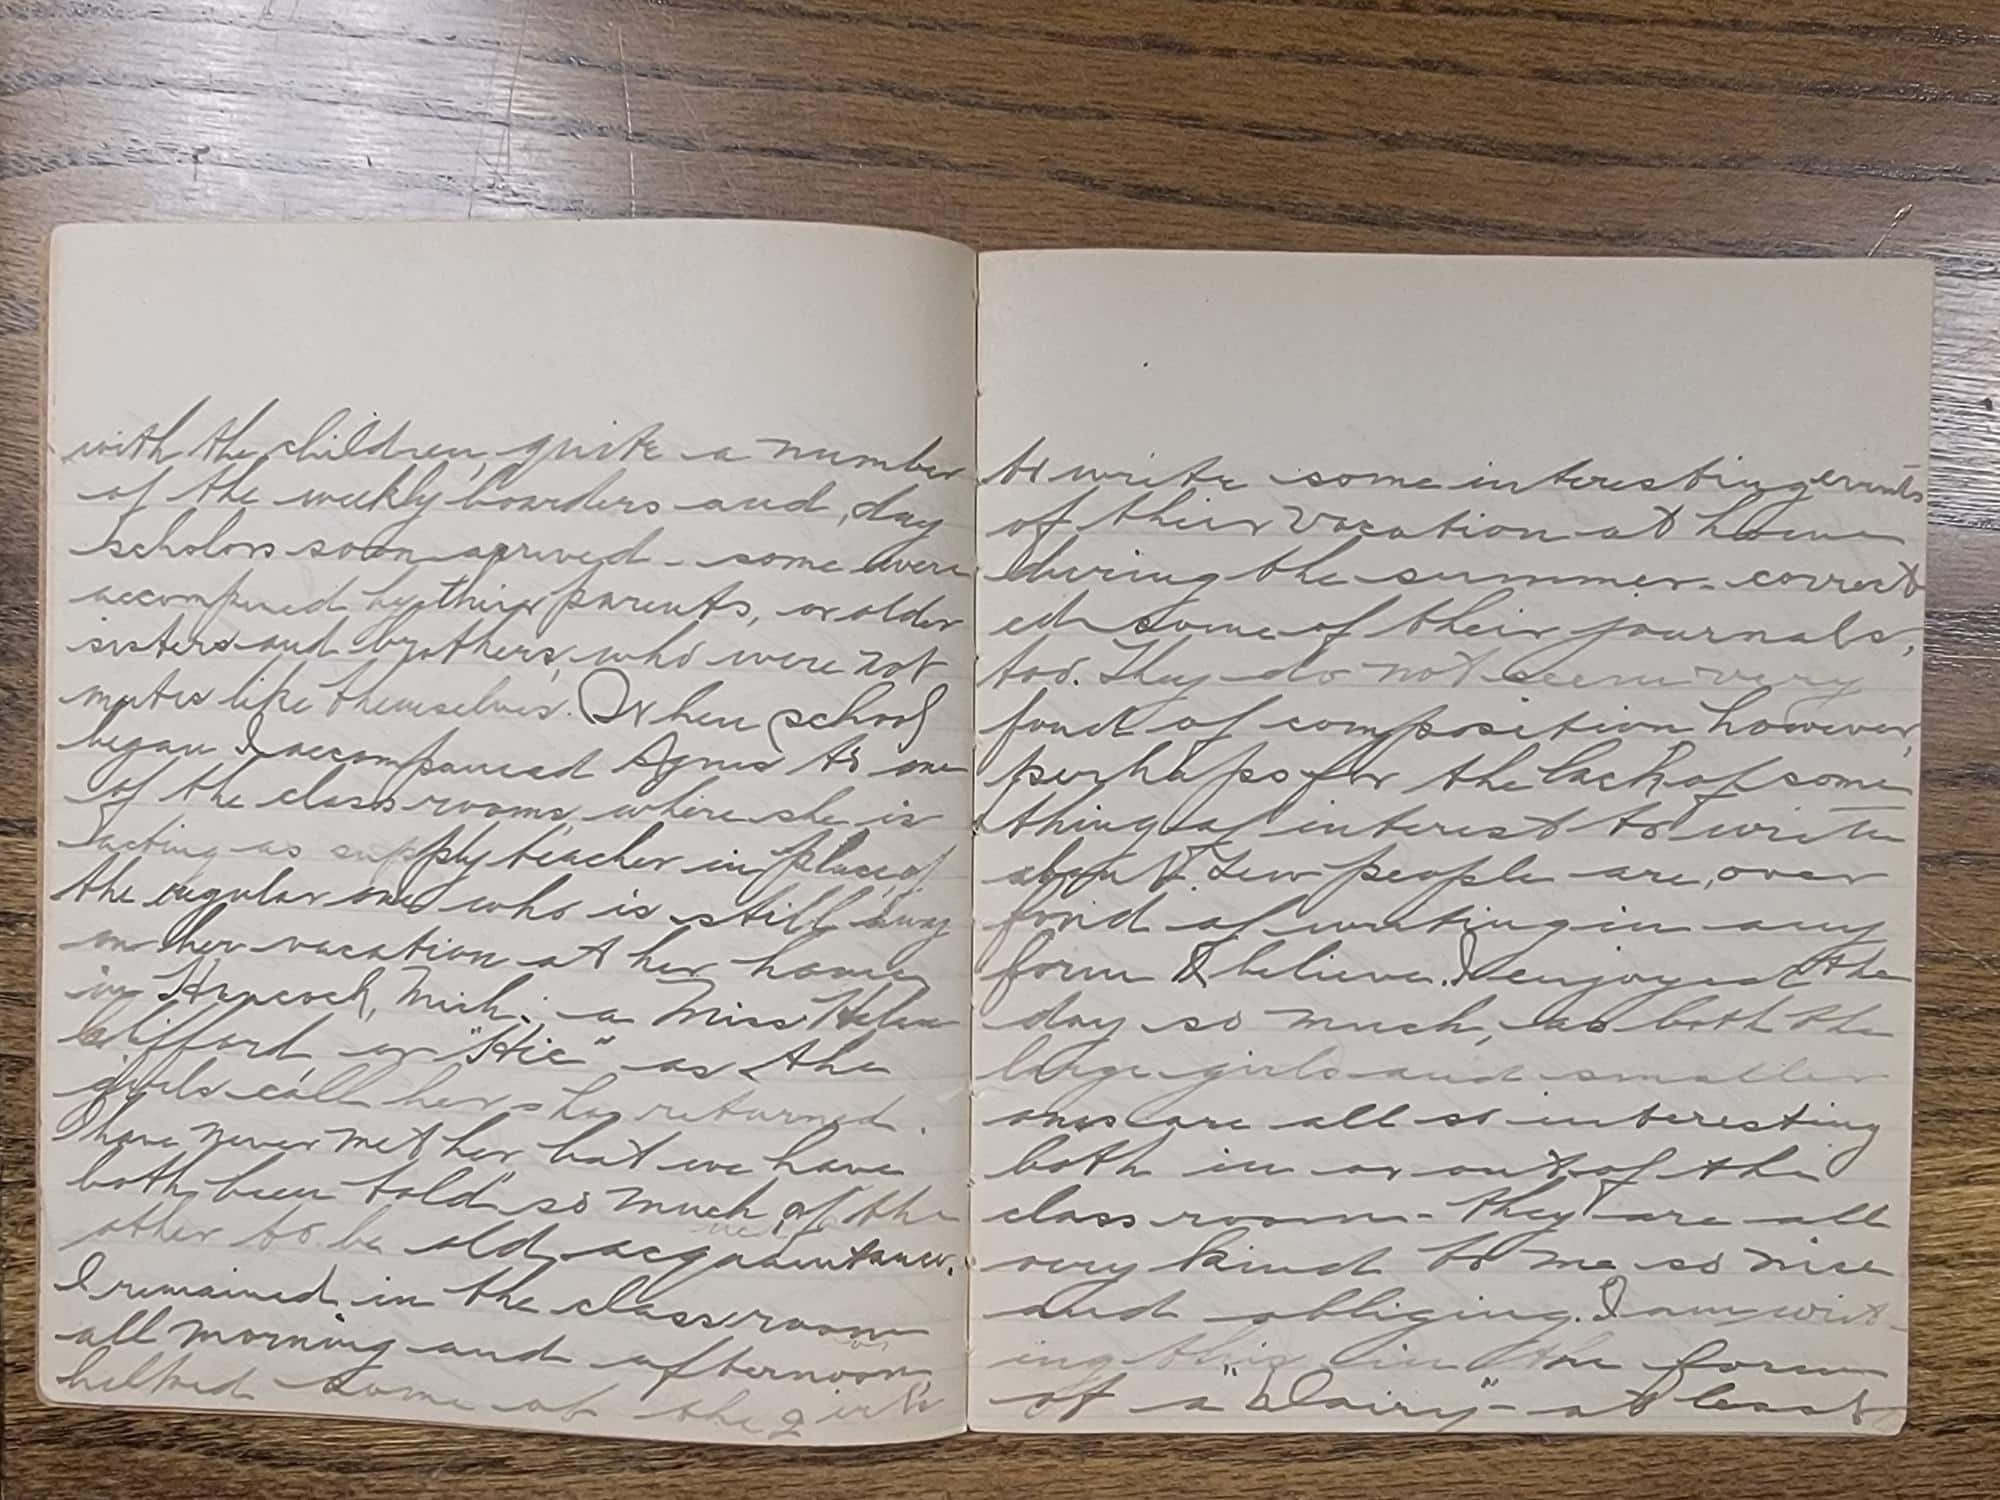 with the children, quite a number
of the weekly boarders and, day
scholars soon arrived - some were
accompined by their parents, or older
sisters and brothers, who were not
mutes like themselves. When school
began I accompanied Agnes to one
of the class rooms, where she is
acting as supply teacher in place of
the regular one who is still away
on her vacation at her home
in Hancock, Mich. ; a Miss Helen
Clifford, or "Hie" as the
girls call her, has returned.
I have never met her, but we have
both been told so much of the
other to be old acquaintances.
I remained in the class room
all morning and afternoon,
helped some of the girls
to write some interesting events
of their vacation at home
during the summer - correct
ed some of their journals,
too. They do not seem very
fond of composition however,
perhaps for the lack of some
thing of interest to write
about. Few people are, over
fond of writing in any
form I believe. I enjoyed the
day so much, as both the
large girls and smaller
ones are all so interesting
both in or out of the
class room - they are all
very kind to me so nice
and obliging. I am writ-
ing this in the form
of a "Dairy" - at least